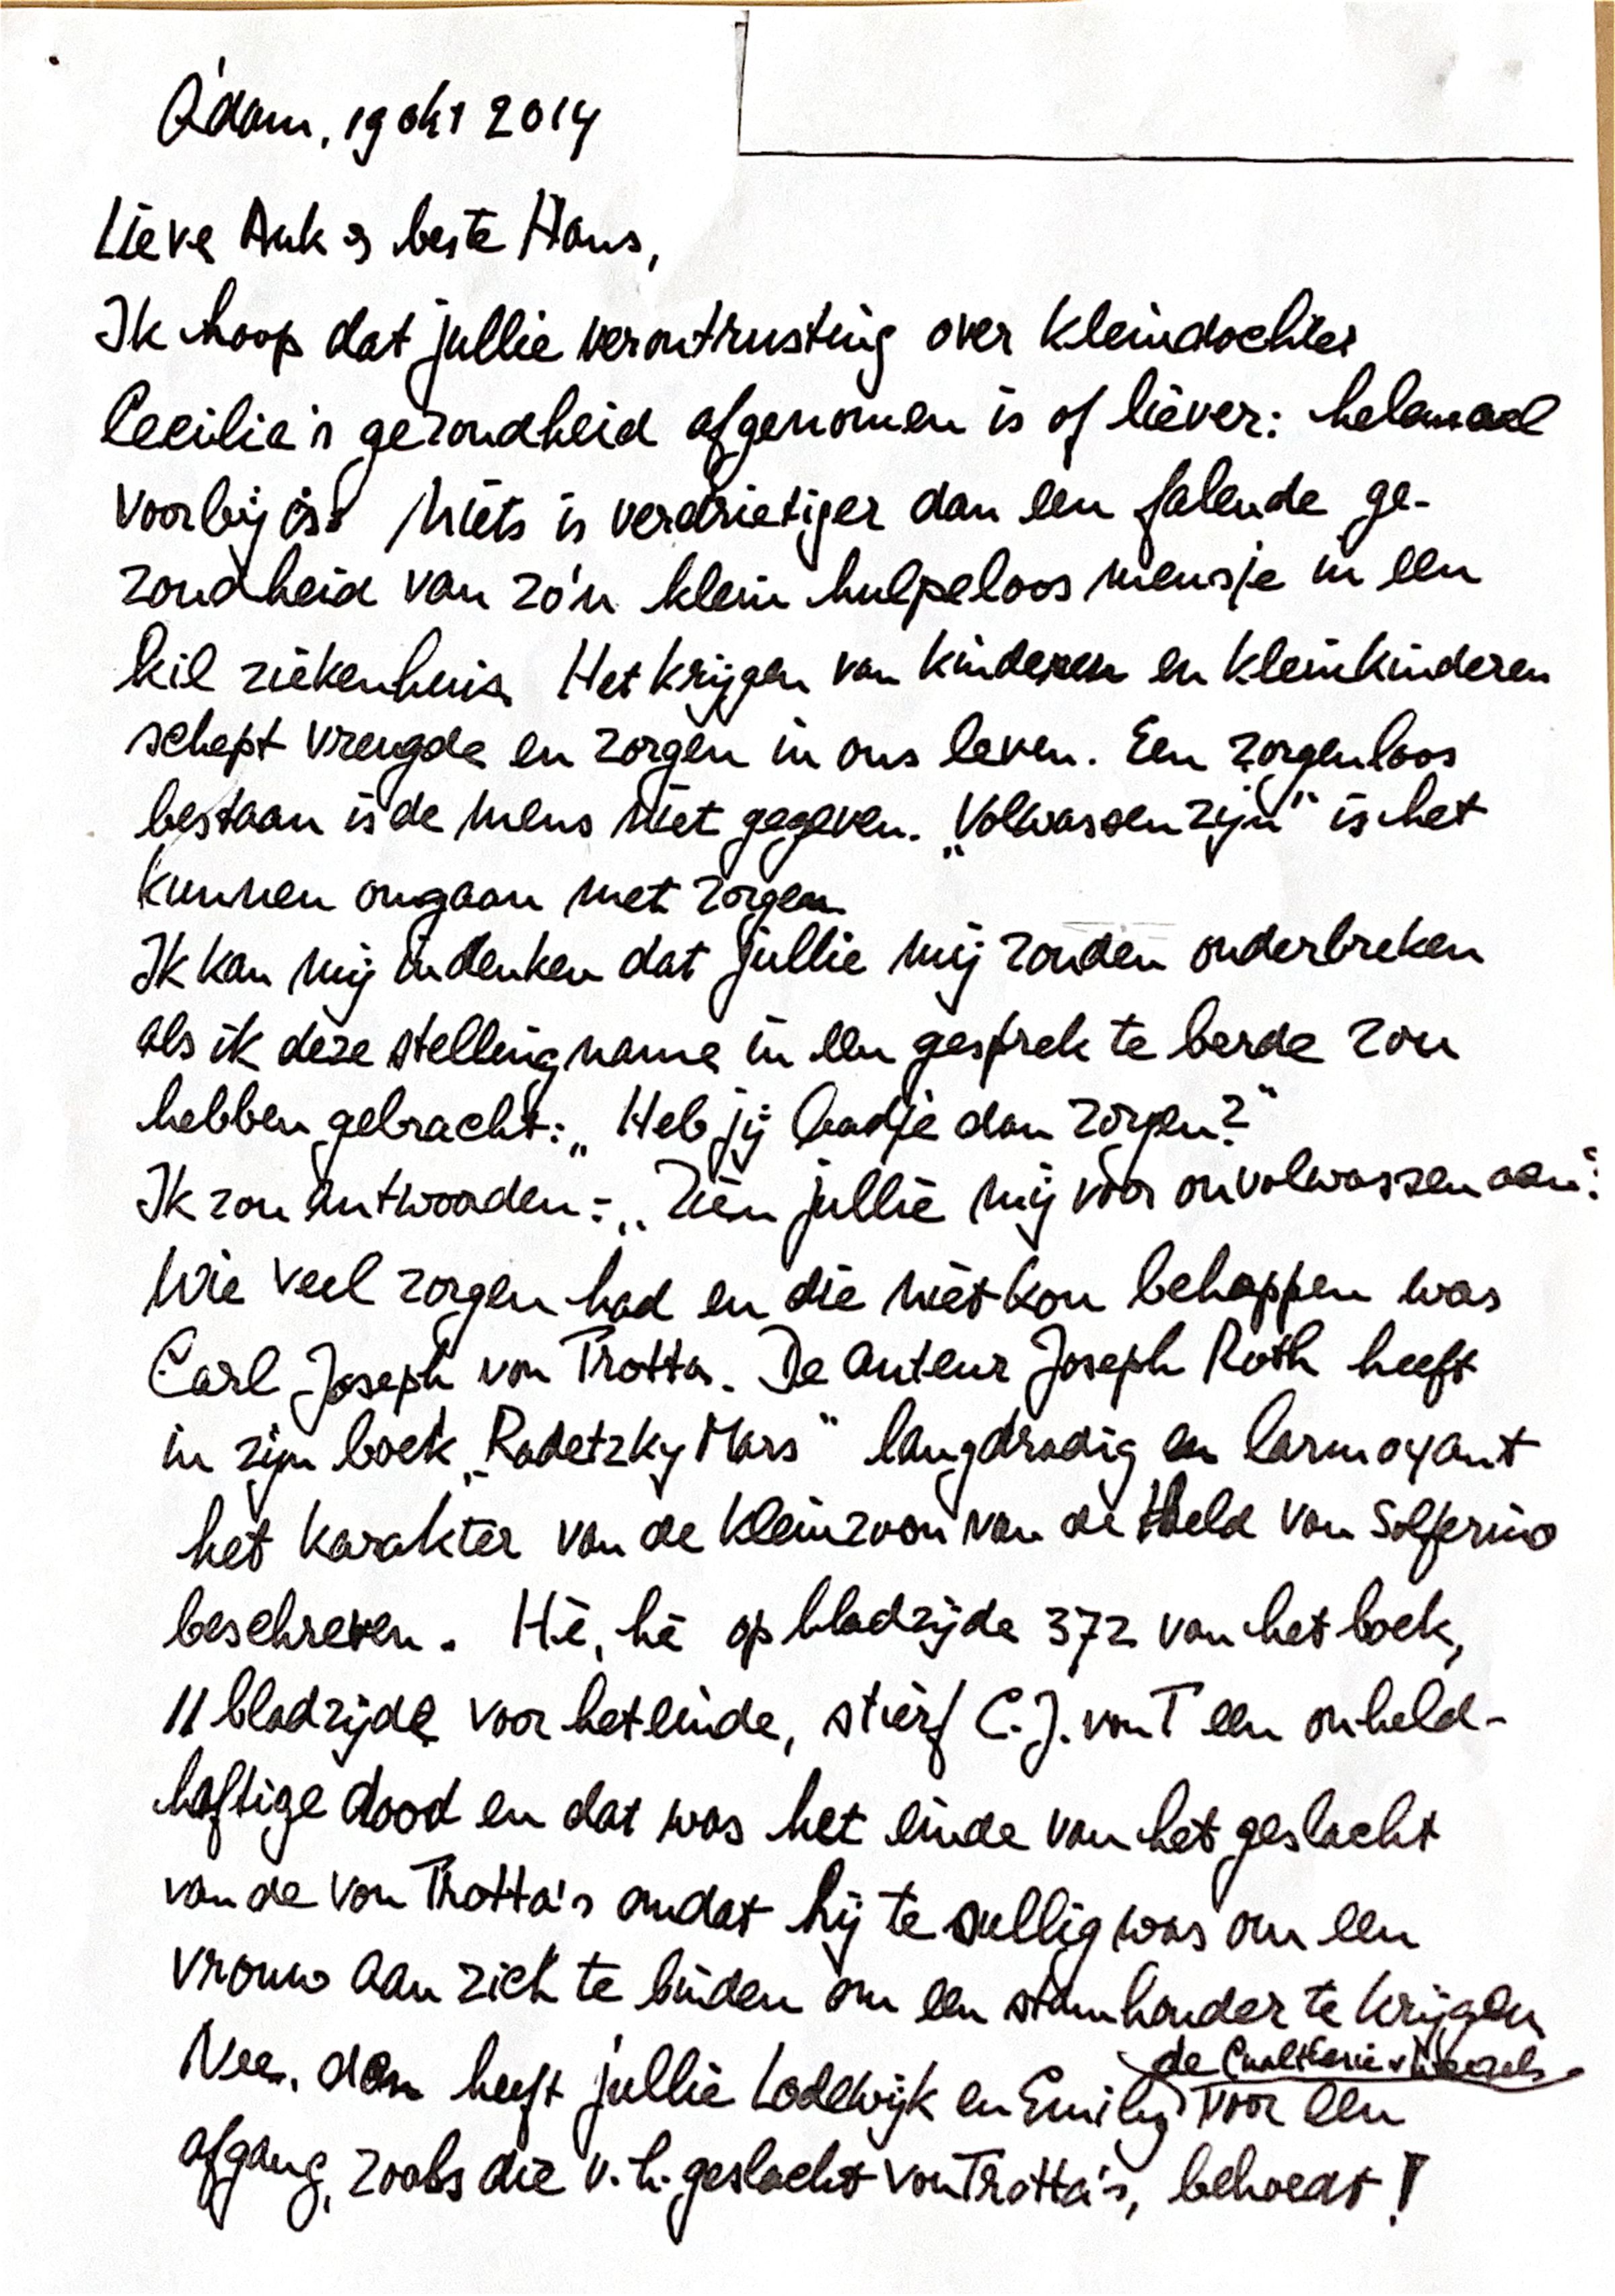 A'dam, 19 okt 2014
Lieve Ank & beste Hans,
Ik hoop dat jullie verontrusting over kleindochter
Cecilia's gezondheid afgenomen is of liever: helemaal
voorbij is. Niets is verdrietiger dan een falende ge-
zondheid van zo'n klein hulpeloos mensje in een
kil ziekenhuis. Het krijgen van kinderen en kleinkinderen
schept vreugde en zorgen in ons leven. Een zorgenloos
bestaan is de mens niet gegeven. „Volwassen zijn" is het
kunnen omgaan met zorgen.
Ik kan mij indenken dat jullie mij zouden onderbreken
als ik deze stellingname in een gesprek te berde zou
hebben gebracht: „Heb jij dan zorgen?"
Ik zou antwoorden: „Zien jullie mij voor onvolwassen aan?
Wie veel zorgen had en die niet kon behappen was
Carl Joseph von Trotta. De auteur Joseph Roth heeft
in zijn boek „Radetzky Mars" langdradig en larmoyant
het karakter van de kleinzoon van de Held van Solferino
beschreven. Hè, hè op bladzijde 372 van het boek,
11 bladzijde voor het einde, stierf C.J. von T een onheld-
haftige dood en dat was het einde van het geslacht
van de von Trotta's omdat hij te sullig was om een
vrouw aan zich te binden om een stamhouder te krijgen
Nee, dan heeft jullie Lodewijk en Emily de voor een
afgang, zoals die v.h. geslacht von Trotta's, behoedt!